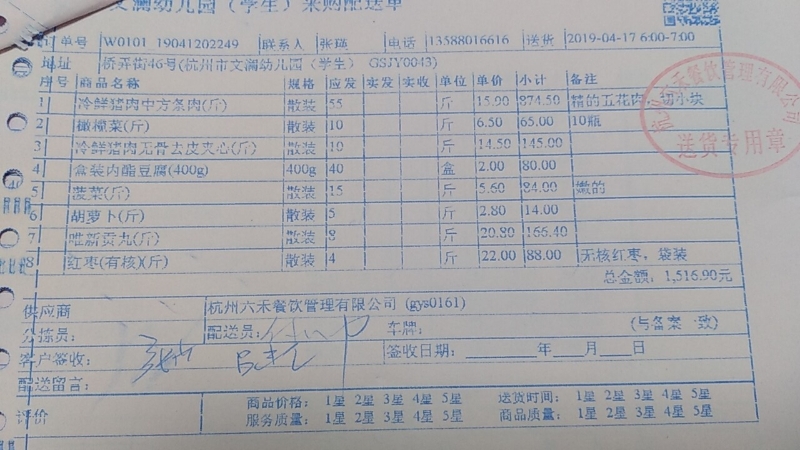 文澜幼儿园（学生）采购配送单
单号 W0101 19041202249 联系人 张瑛 电话 13588016616 送货 2019-04-17 6:00-7:00
地址 侨弄街46号(杭州市文澜幼儿园（学生） GSJY0043)
序号 商品名称 规格 应发 实发 实收 单位 单价 小计 备注
1 冷鲜猪肉中方条肉(斤) 散装 55 斤 15.90 874.50 精的五花肉，切小块
2 橄榄菜(斤) 散装 10 斤 6.50 65.00 10瓶
3 冷鲜猪肉无骨去皮夹心(斤) 散装 10 斤 14.50 145.00
4 盒装内酯豆腐(400g) 400g 40 盒 2.00 80.00
5 菠菜(斤) 散装 15 斤 5.60 84.00 嫩的
6 胡萝卜(斤) 散装 5 斤 2.80 14.00
7 唯新贡丸(斤) 散装 8 斤 20.80 166.40
8 红枣(有核)(斤) 散装 4 斤 22.00 88.00 无核红枣，袋装
总金额：1,516.90元
供应商 杭州六禾餐饮管理有限公司 (gys0161)
分拣员： 配送员： 车牌： (与备案一致)
客户签收： 签收日期： 年 月 日
配送留言：
评价 商品价格： 1星 2星 3星 4星 5星 送货时间： 1星 2星 3星 4星 5星
服务质量： 1星 2星 3星 4星 5星 商品质量： 1星 2星 3星 4星 5星
六禾餐饮管理有限公司
送货专用章